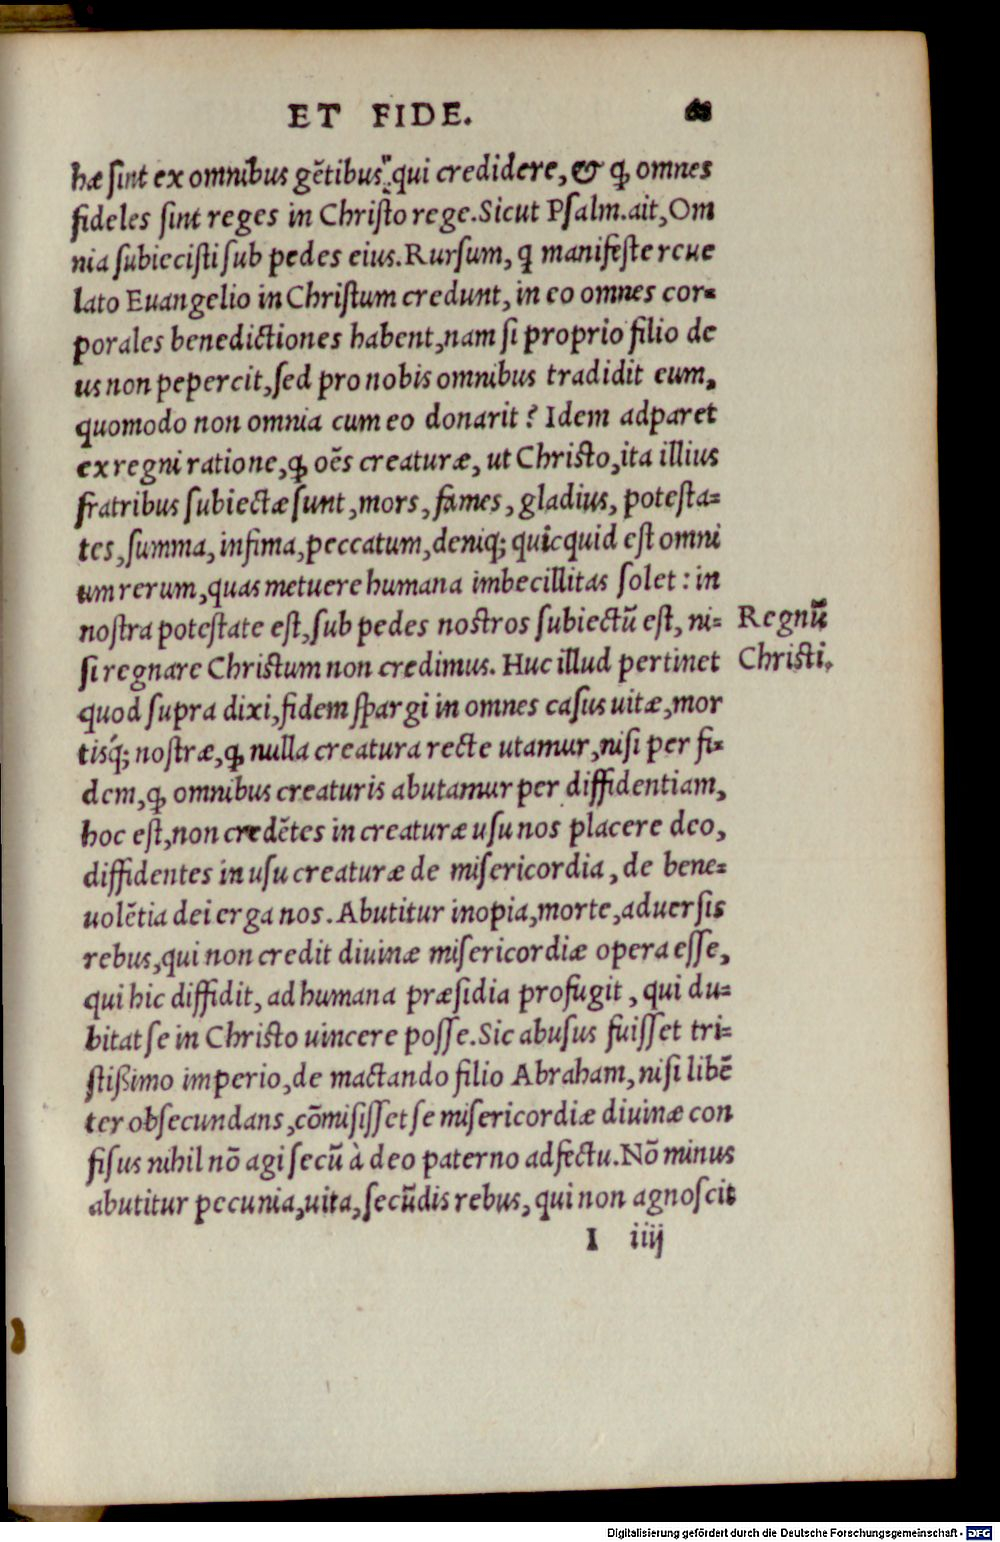 ET FIDE. 68
hæ ſint ex omnibus gẽtibus, qui credidere, & ꝙ omnes
fideles ſint reges in Chriſto rege. Sicut Pſalm. ait, Om
nia ſubieciſti ſub pedes eius. Rurſum, ꝗ manifeſte reue
lato Euangelio in Chriſtum credunt, in eo omnes cor⸗
porales benedictiones habent, nam ſi proprio filio de
us non pepercit, ſed pro nobis omnibus tradidit eum,
quomodo non omnia cum eo donarit? Idem adparet
ex regni ratione, ꝙ oẽs creaturæ, ut Chriſto, ita illius
fratribus ſubiectæ ſunt, mors, fames, gladius, poteſta⸗
tes, ſumma, infima, peccatum, deniq; quicquid eſt omni
um rerum, quas metuere humana imbecillitas ſolet: in
noſtra poteſtate eſt, ſub pedes noſtros ſubiectũ eſt, ni⸗
Regnũ
ſi regnare Chriſtum non credimus. Huc illud pertinet
Chriſti.
quod ſupra dixi, fidem ſpargi in omnes caſus uitæ, mor
tisq́; noſtræ, ꝙ nulla creatura recte utamur, niſi per fi⸗
dem, ꝙ omnibus creaturis abutamur per diffidentiam,
hoc eſt, non credẽtes in creaturæ uſu nos placere deo,
diffidentes in uſu creaturæ de miſericordia, de bene⸗
uolẽtia dei erga nos. Abutitur inopia, morte, aduerſis
rebus, qui non credit diuinæ miſericordiæ opera eſſe,
qui hic diffidit, ad humana præſidia profugit, qui du⸗
bitat ſe in Chriſto uincere poſſe. Sic abuſus fuiſſet tri⸗
ſtißimo imperio, de mactando filio Abraham, niſi libẽ
ter obſecundans, cõmiſiſſet ſe miſericordiæ diuinæ con
fiſus nihil nõ agi ſecũ à deo paterno adfectu. Nõ minus
abutitur pecunia, uita, ſecũdis rebus, qui non agnoſcit
I iiij
Digitalisierung gefördert durch die Deutsche Forschungsgemeinschaft - DFG